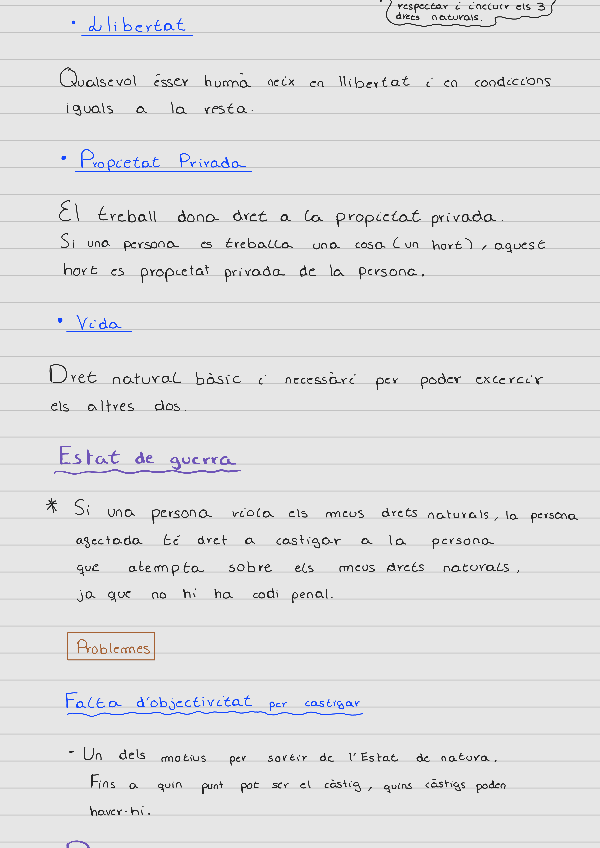 respectar i incloure els 3
drets naturals.
• Llibertat
Qualsevol ésser humà neix en llibertat i en condicions
iguals a la resta.
• Propietat Privada
El treball dona dret a la propietat privada.
Si una persona es treballa una cosa (un hort), aquest
hort es propietat privada de la persona.
• Vida
Dret natural bàsic i necessàri per poder excercir
els altres dos.
Estat de guerra
* Si una persona viola els meus drets naturals, la persona
afectada té dret a castigar a la persona
que atempta sobre els meus drets naturals,
ja que no hi ha codi penal.
Problemes
Falta d'objectivitat per castigar
- Un dels motius per sortir de l'Estat de natura.
Fins a quin punt pot ser el càstig, quins càstigs poden
haver-hi.